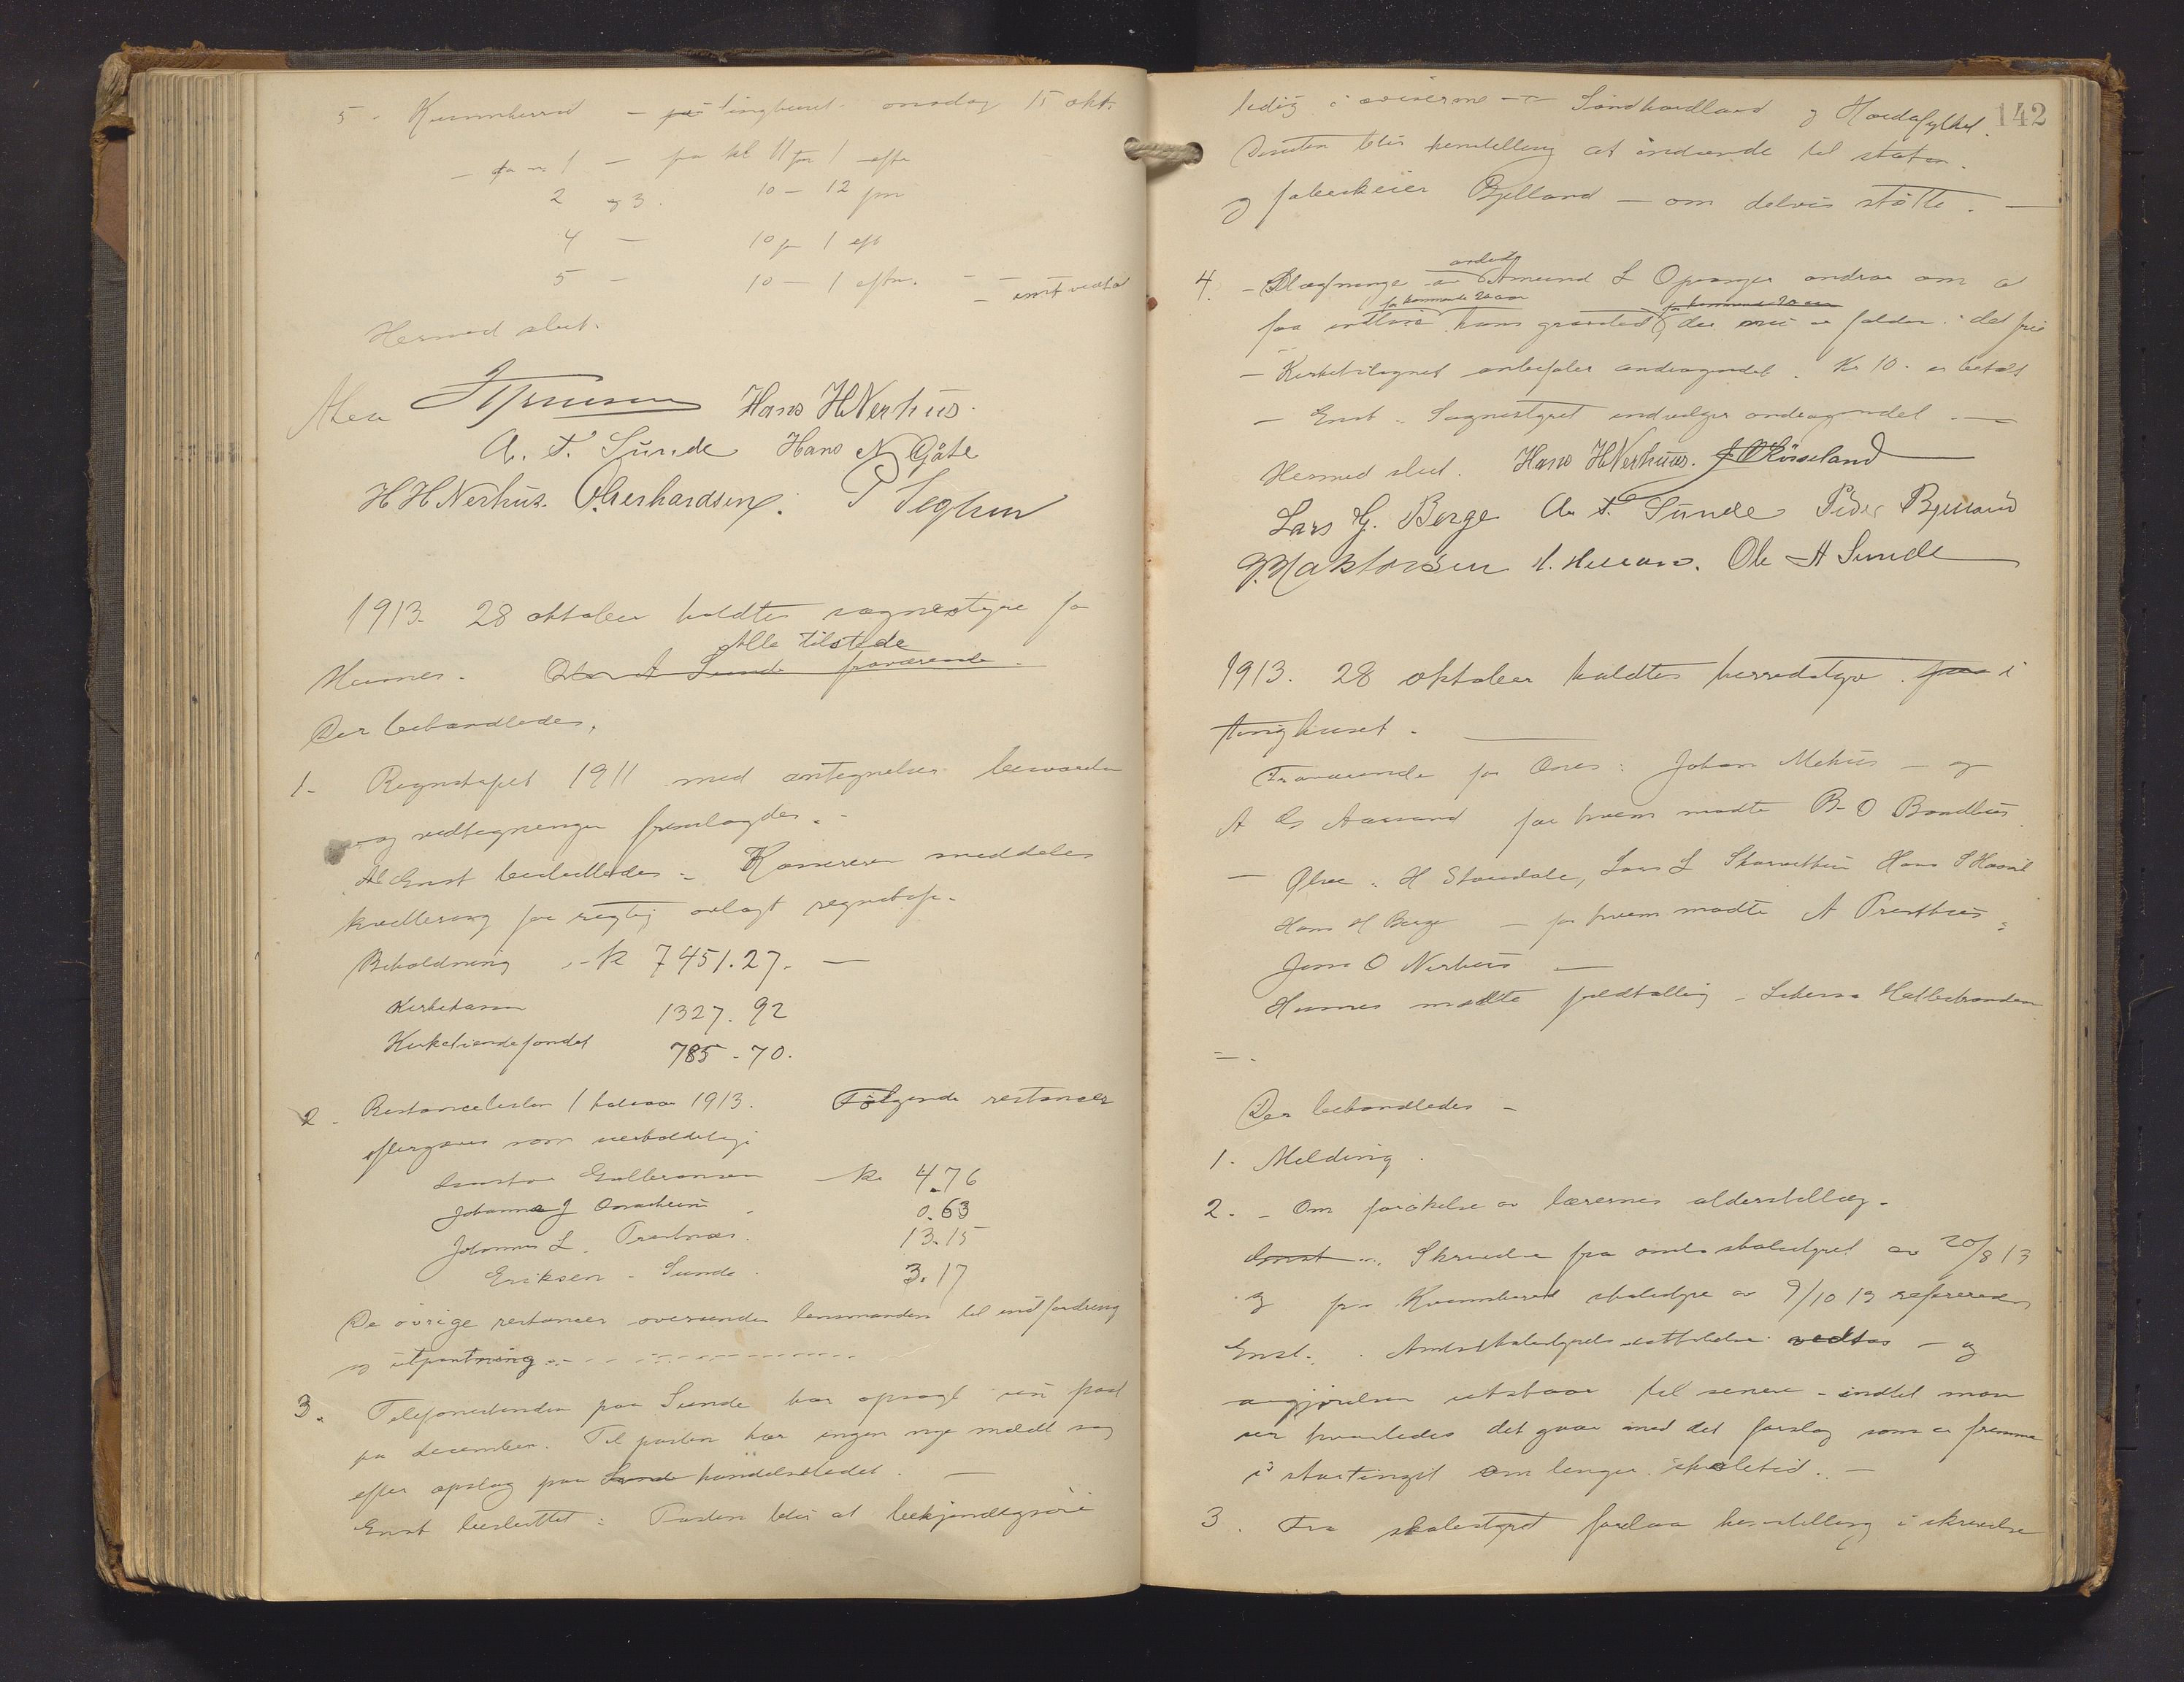 5 - Kvinnherred - på tinghuset onsdag 15 okt.
- fra nr 1 - fra kl 11 fm 1 eftm
2 og 3. 10 - 12 fm
4 - 10 fm 1 eft
5 - 10 - 1 eftm. - enst vedtat
Hermed slut.
Hans H Nerhus.
A. T. Sunde Hans N Gjøte
H H Nerhus. O. Gerhardsen. P
1913. 28 oktober holdtes sognestyre for
Alle tilstede
Husnes. Ole A Sunde fraværende.
Der behandledes,
1- Regnskapet 1911 med antegnelser besvarelser
og vedtegninger fremlagdes.
Enst besluttedes - Kassereren meddeles
kvittering for rigtig avlagt regnskap.
Beholdning - kr 7451.27. -
Kirkekassen 1327.92
Kirketiendefondet 785-70.
2. Restancelisten 1 halvaar 1913. Følgende restancer
eftergives som uerholdelige
Gulbransen - kr 4.76
Johannes J 0.63
Johannes L. Prestnes. 13.15
Eriksen - Sunde 3.17
De øvrige restancer oversendes lensmanden til indfordring
og utpantning
3. Telefonstanden paa Sunde har opsagt sin post
fra december. Til posten har ingen nye meldt sig
efter opslag paa Sunde handelsstedet. -
Enst besluttet: Posten blir at bekjendtgjøre
142
ledig i aviserne - Søndhordland og Hordafylket.
Desuten blir henstilling at indsende til staten
og fabrikeier Bjelland - om delvis støtte. -
avdøde
4. - Slegtninge av Amund L Opsanger andrar om at
for kommende 20 aar for kommende 20 aar
faa indløse hans gravsted, der nu er falden i det fri
- Kirketilsynet anbefaler andragendet. Kr 10. er betalt
- Enst. Sognestyret indvilger andragendet. -
Hermed slut. Hans H Nerhus.
Lars G. Berge A. T. Sunde Peder Bjelland
Ole A Sunde
1913. 28 oktober holdtes herredstyre paa i
tinghuset.
Fraværende for Ænes: Johan Mehus - og
A Aarsand for hvem møtte B. O Bondhus
- Ølve: H Stuedale, Lars L Hans S
Hans H Berge - for hvem møtte A Presthus
Jens O Nerhus -
Husnes møtte fuldtallig -
Der behandledes -
1. Melding.
2. - Om forøkelse av lærernes alderstillæg.
Enst. Skrivelse fra amtsskolestyret av 20/8 13
og fra Kvinnherred skolestyre av 9/10 13 refereredes
Enst. Amtsskolestyrets vedtas - og
avgjørelsen utstaar til senere - indtil man
ser hvorledes det gaar med det forslag som er fremme
i stortinget om lenger skoletid. -
3. Fra skolestyret forelaa henstilling i skrivelse